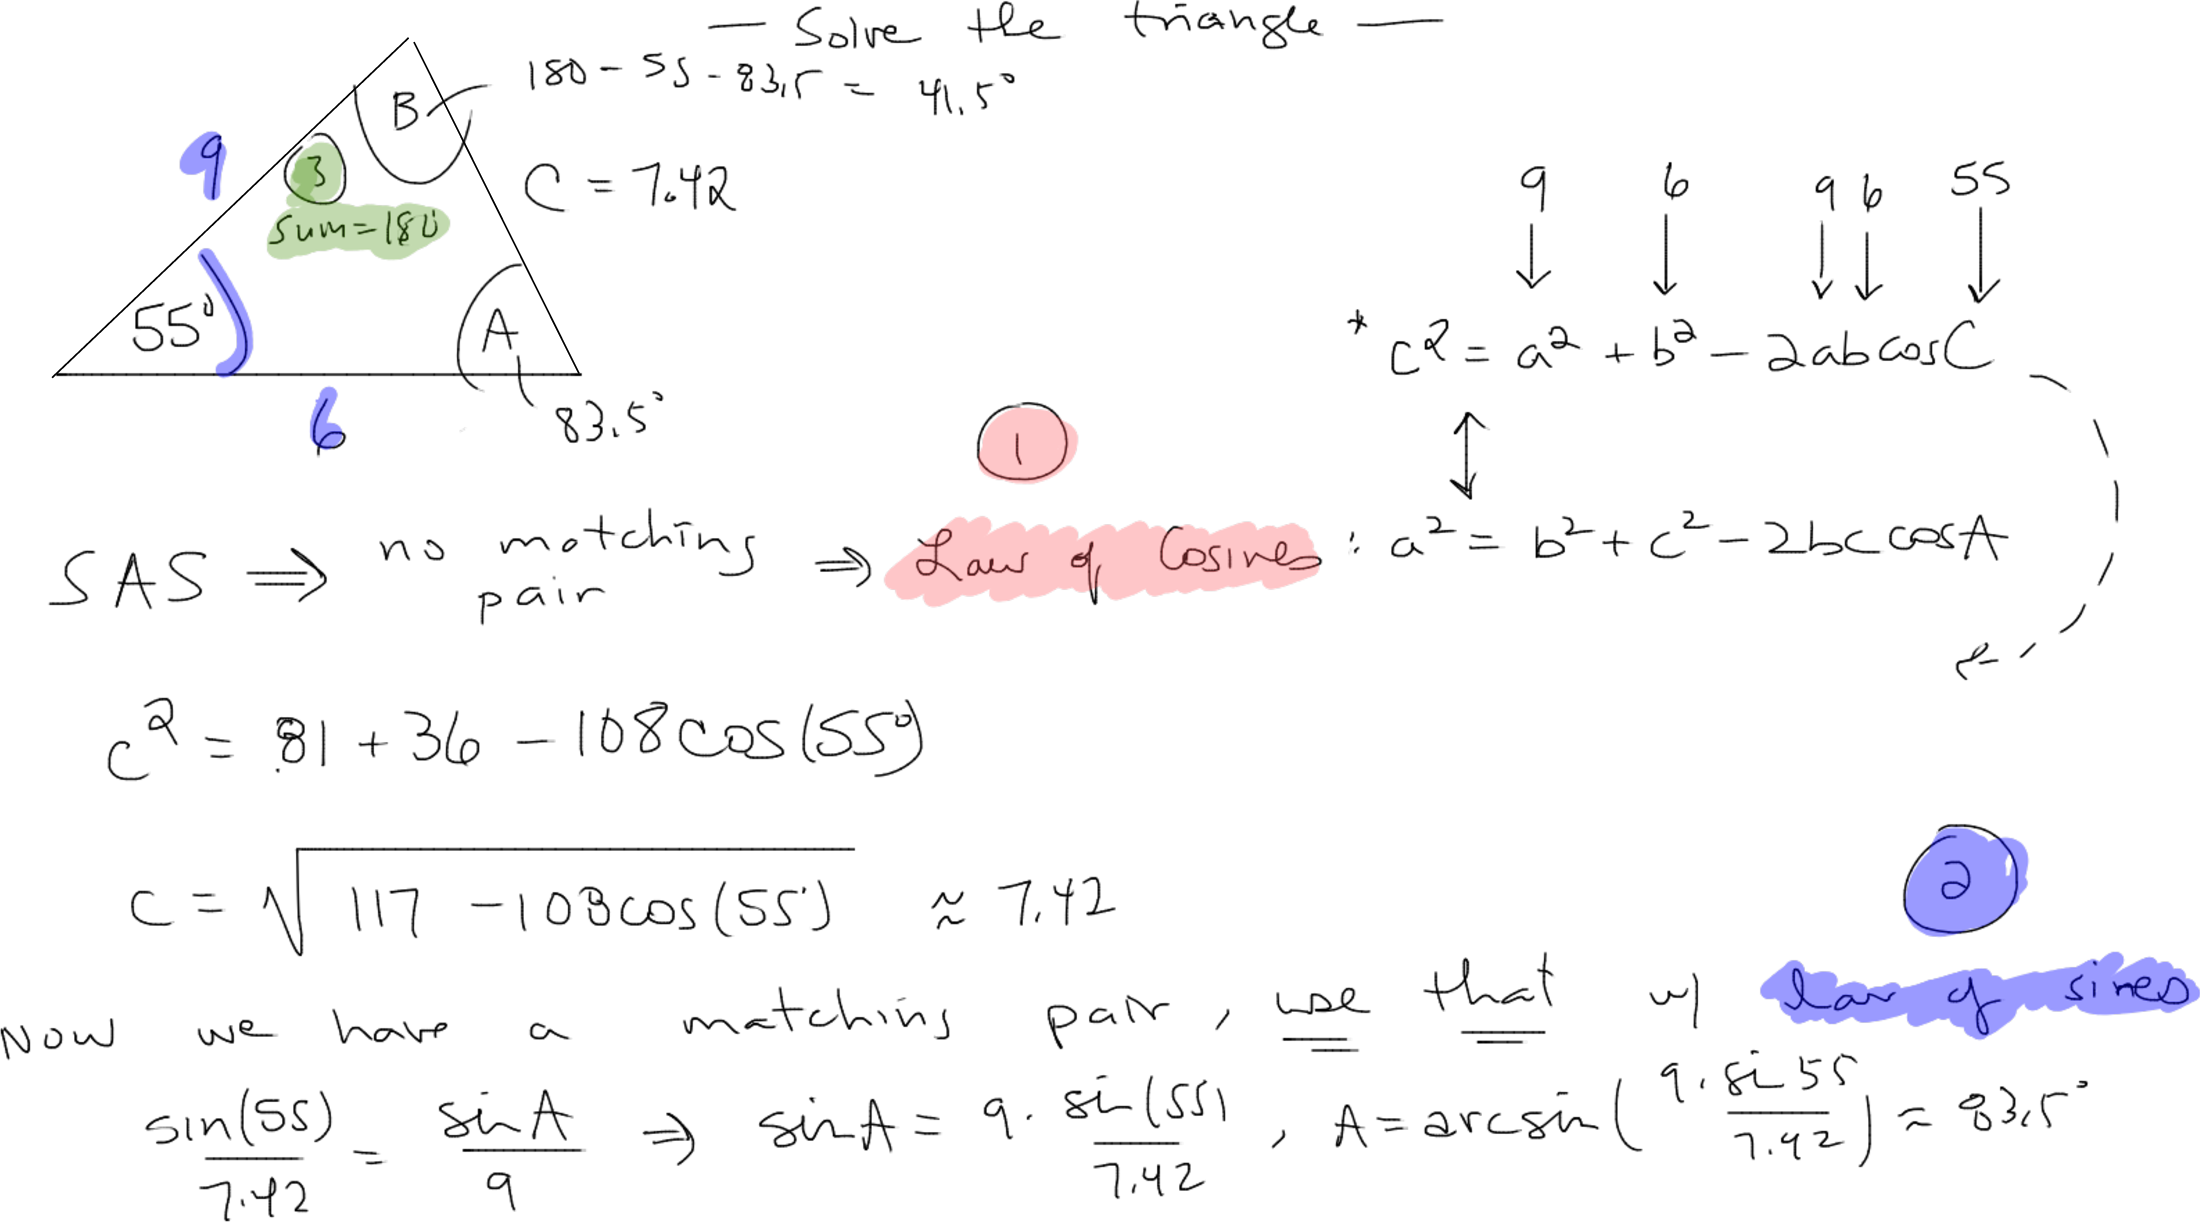 — Solve the triangle —
180 - 55 - 83.5 = 41.5°
B
9
3
sum=180
C = 7.42
55°
A
6
83.5°
9 6 9 6 55
* c² = a² + b² - 2abcosC
1
SAS ⇒ no matching pair ⇒ Law of Cosines : a² = b² + c² - 2bc cosA
c² = 81 + 36 - 108cos(55°)
c = √117 - 108cos(55°) ≈ 7.42
2
Now we have a matching pair, use that w/ law of sines
sin(55)/7.42 = sinA/9 ⇒ sinA = 9 · sin(55)/7.42 , A = arcsin(9 · sin 55/7.42) ≈ 83.5°